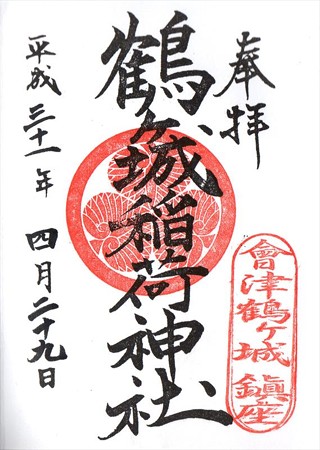 奉拝
會津鶴ヶ城 鎮座
鶴ヶ城稲荷神社
平成三十一年 四月二十九日